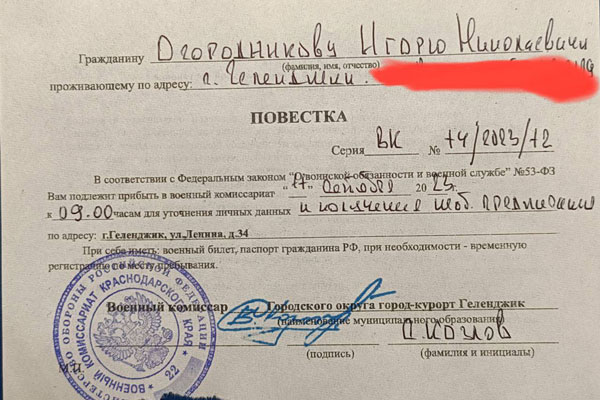 Гражданину Огородникову Игорю Николаевичу
(фамилия, имя, отчество)
проживающему по адресу: г. Геленджик
ПОВЕСТКА
Серия ВК № 74/2023/72
В соответствии с Федеральным законом "О воинской обязанности и военной службе" №53-ФЗ
Вам подлежит прибыть в военный комиссариат "17" октября 2023г.
к 09.00 часам для уточнения личных данных и получения моб. предписания
по адресу: г.Геленджик, ул,Ленина, д.34
При себе иметь: военный билет, паспорт гражданина РФ, при необходимости - временную
регистрацию по месту пребывания.
Военный комиссар Городского округа город-курорт Геленджик
(наименование муниципального образования)
Козлов
(подпись) (фамилия и инициалы)
М.П.
МИНИСТЕРСТВО ОБОРОНЫ РОССИЙСКОЙ ФЕДЕРАЦИИ
ВОЕННЫЙ КОМИССАРИАТ КРАСНОДАРСКОГО КРАЯ
22